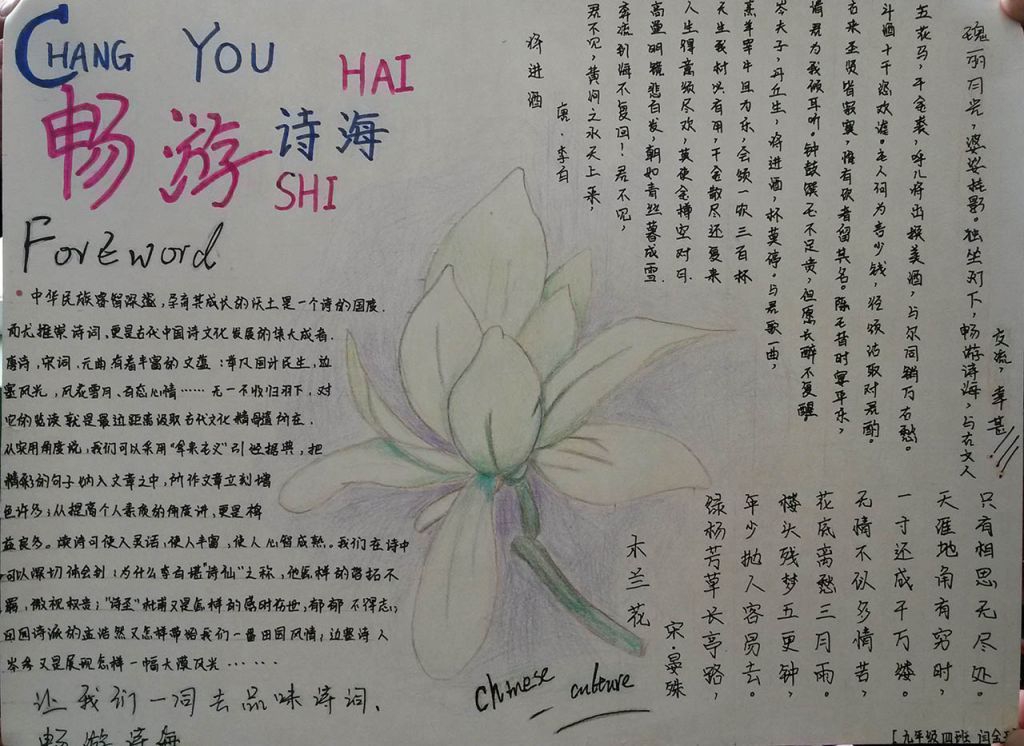 CHANG YOU
HAI
畅游诗海
SHI
ForEword
中华民族睿智深邃，孕育其成长的沃土是一个诗的国度.
而尤推崇诗词，更是古代中国诗文化发展的集大成者.
唐诗，宋词，元曲有着丰富的文蕴：举凡国计民生，边
塞风光，风花雪月、百态心情……无一不收归羽下，对
它的览读就是最近距离汲取古代文化精髓所在.
从实用角度说，我们可以采用"拿来主义"引经据典，把
精彩的句子纳入文章之中，所作文章立刻增
色许多；从提高个人素质的角度讲，更是裨
益良多。读诗可使人灵活，使人丰富，使人心智成熟。我们在诗中
可以深切体会到：为什么李白堪"诗仙"之称，他怎样的落拓不
羁，傲视权贵；"诗圣"杜甫又是怎样的感时伤世，郁郁不得志；
田园诗派的孟浩然又怎样带给我们一番田园风情；边塞诗人
岑参又是展现怎样一幅大漠风光……
让我们一同去品味诗词、
畅游诗海
将进酒
唐·李白
君不见，黄河之水天上来，
奔流到海不复回！君不见，
高堂明镜悲白发，朝如青丝暮成雪.
人生得意须尽欢，莫使金樽空对月.
天生我材必有用，千金散尽还复来
烹羊宰牛且为乐，会须一饮三百杯
岑夫子，丹丘生，将进酒，杯莫停。与君歌一曲，
请君为我倾耳听。钟鼓馔玉不足贵，但愿长醉不复醒
古来圣贤皆寂寞，惟有饮者留其名。陈王昔时宴平乐，
斗酒十千恣欢谑。主人何为言少钱，径须沽取对君酌。
五花马，千金裘，呼儿将出换美酒，与尔同销万古愁。
瑰丽月光，婆娑桂影。独坐灯下，畅游诗海，与古文人
交流，幸甚!!!
木兰花
宋·晏殊
绿杨芳草长亭路，
年少抛人容易去。
楼头残梦五更钟，
花底离愁三月雨。
无情不似多情苦，
一寸还成千万缕。
天涯地角有穷时，
只有相思无尽处。
chinese culture
[九年级四班 闫金